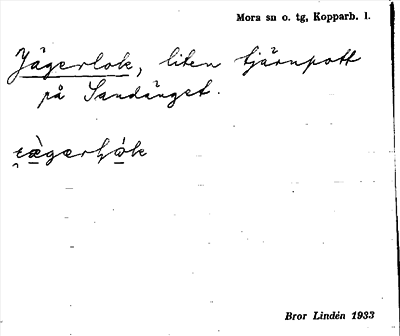 Mora sn o. tg, Kopparb. l.
Jägerlok, liten tjärnpott
på Sandänget.
Bror Lindén 1933